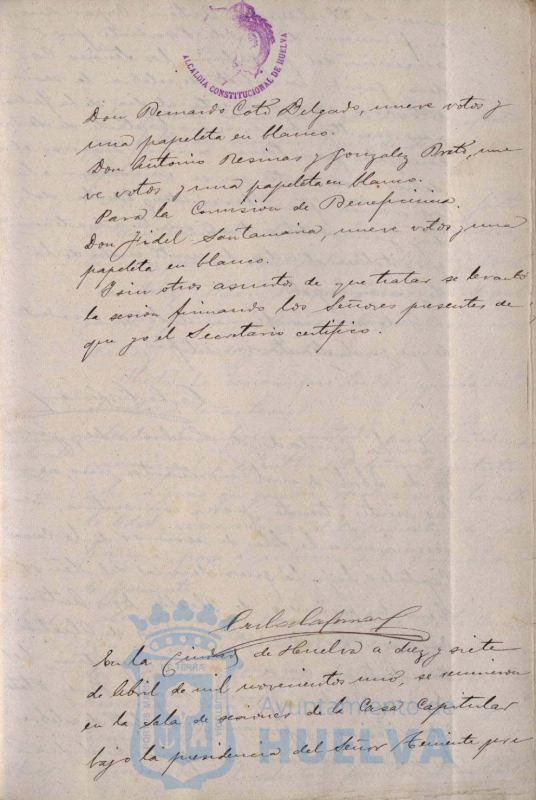 ALCALDIA CONSTITUCIONAL DE HUELVA
Don Bernardo Coto Delgado, nueve votos y
una papeleta en blanco.
Don Antonio Resinas y Gonzalez Breto, nue
ve votos y una papeleta en blanco.
Para la Comision de Beneficiencia.
Don Fidel Santamaria, nueve votos y una
papeleta en blanco.
I sin otros asuntos de que tratar se levantó
la sesión firmando los Señores presentes de
que yo el Secretario certifico.
En la Ciudad de Huelva a diez y siete
de Abril de mil novecientos uno, se reunieron
en la Sala de sesiones de la Casa Capitular
bajo la presidencia del Señor Teniente
Ayuntamiento de
HUELVA